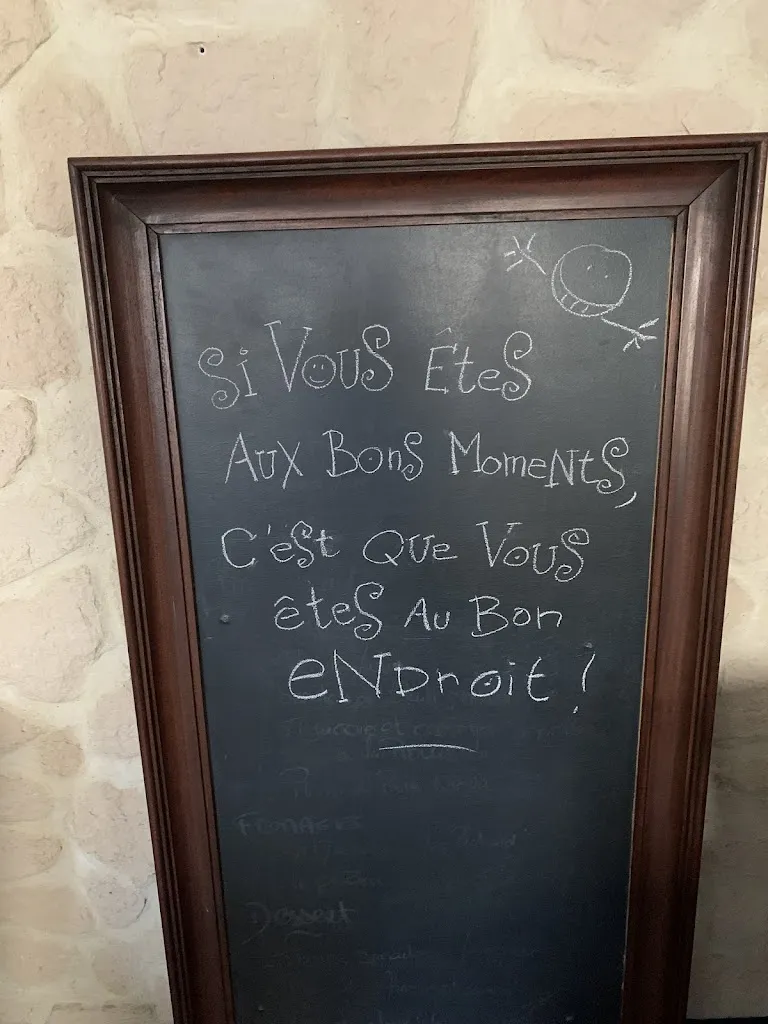 Si Vous Êtes
Aux Bons Moments,
C'est Que Vous
êtes Au Bon
enDroit !
Fromages
Dessert